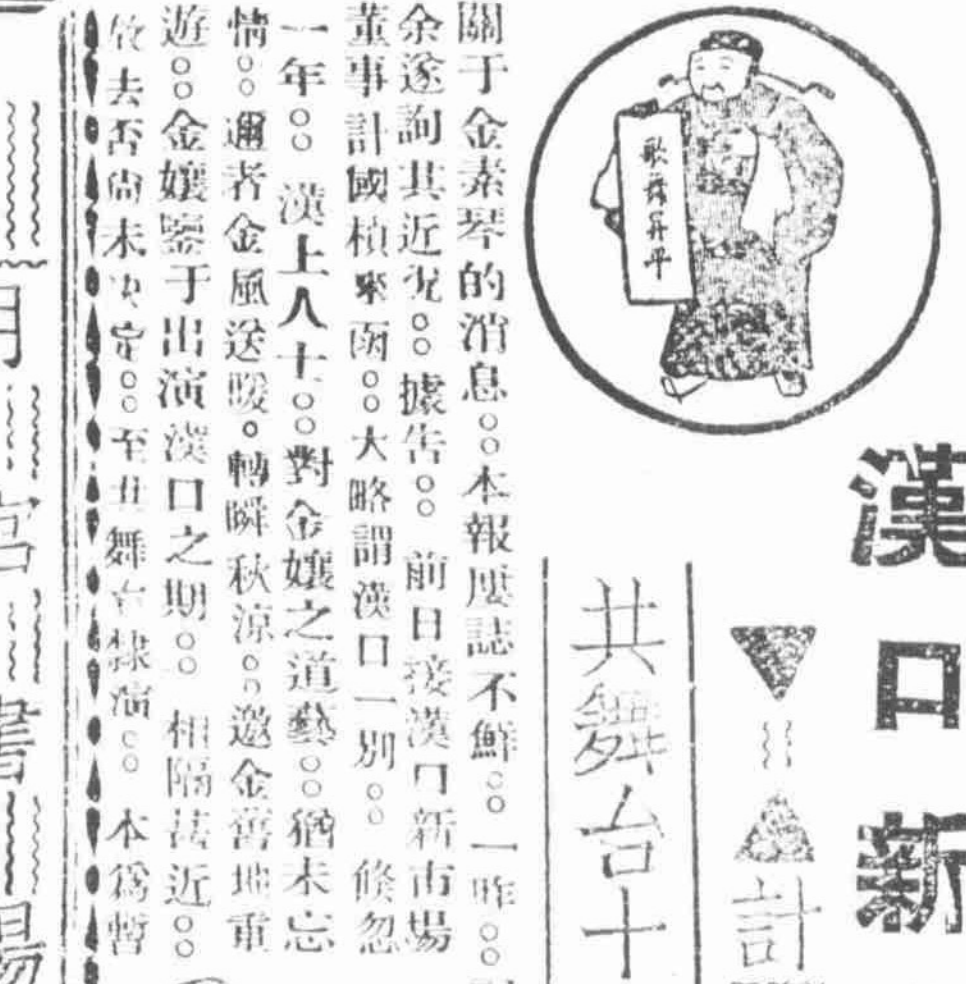 漢口新
計
共舞台十
歌舞昇平
關于金素琴的消息○○本報屢誌不鮮○○一昨○○
余遂詢其近況○○據告○○前日接漢口新市場
董事計國楨來函○○大略謂漢口一別○○倏忽
一年○○漢上人士○○對金孃之道藝○○猶未忘
情○○邇者金風送暖○轉瞬秋涼○○邀金舊地重
遊○○金孃鑒于出演漢口之期○○相隔甚近○○
去否尚未决定○○至丑舞台隸演○○本爲暫
月宮書場